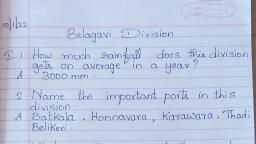 10/1/22
Belagavi Division
I. 1. How much rainfall does this division
gets on average in a year?
A 3000 mm.
2 Name the important ports in this
division.
A Batkala, Honnavara, Karawara, Thadi
Belikeri.